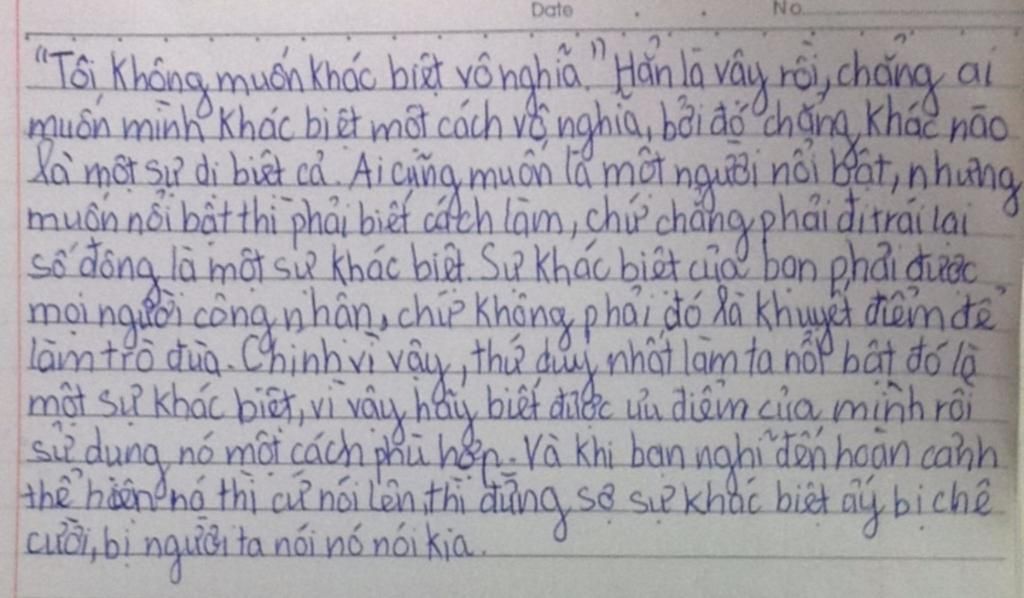 Date . . No
"Tôi không muốn khác biệt vô nghĩa." Hẳn là vậy rồi, chẳng ai
muốn mình khác biệt một cách vô nghĩa, bởi đó chẳng khác nào
là một sự dị biệt cả. Ai cũng muốn là một người nổi bật, nhưng
muốn nổi bật thì phải biết cách làm, chứ chẳng phải đi trái lại
số đông là một sự khác biệt. Sự khác biệt của bạn phải được
mọi người công nhận, chứ không phải đó là khuyết điểm để
làm trò đùa. Chính vì vậy, thứ duy nhất làm ta nổi bật đó là
một sự khác biệt, vì vậy hãy biết được ưu điểm của mình rồi
sử dụng nó một cách phù hợp. Và khi bạn nghĩ đến hoàn cảnh
thể hiện nó thì cứ nói lên, thì đừng sợ sự khác biệt ấy bị chê
cười, bị người ta nói nó nói kia.